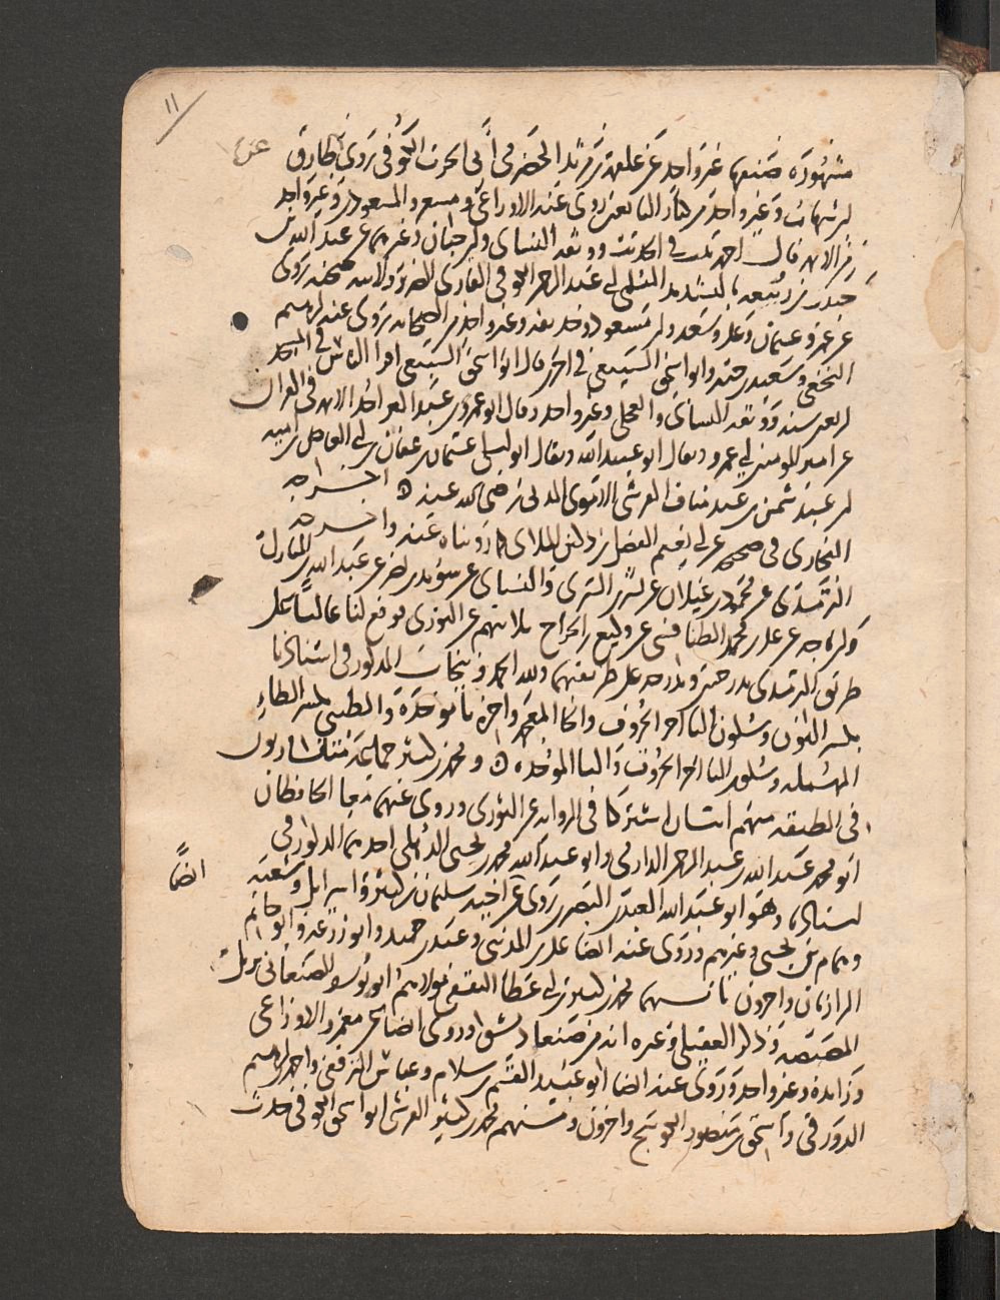 ١١
مشهورة منهما غير واحد عن علقمة بن مرثد الحضرمي أبي الحرث الكوفي روى عن طارق
بن شهاب وغير واحد من كبار التابعين روى عنه الاوزاعي ومسعر والمسعودي وغير واحد
من الايمة قال احمد ثبت في الحديث ووثقه النسائي وابن حبان وغيرهما عن عبد الله بن
حبيب بن ربيعة بالتشديد السلمي ابي عبد الرحمن الكوفي القارئ الضرير ولابيه صحبة روى
عن عمر وعثمان وعلي وسعد وابن مسعود وحذيفة وغير واحد من الصحابة روى عنه ابرهيم
النخعي وسعيد بن جبير وابو اسحق السبيعي في اخرين قال ابو اسحق السبيعي اقرا الناس في المسجد
اربعين سنة ووثقه النسائي والعجلي وغير واحد وقال ابو عمرو بن عبد البر احد الايمة في القران
عن امير المومنين ابي عمرو ويقال ابو عبد الله ويقال ابو ليلى عثمان بن عفان بن ابي العاص بن امية
بن عبد شمس بن عبد مناف القرشي الاموي المدني رضي الله عنه اخرجه
البخاري في صحيحه عن ابي نعيم الفضل بن دكين الملائي كما رويناه عنه واخرجه
الترمذي عن محمود بن غيلان عن بشر بن السري والنسائي عن سويد بن نصر عن عبد الله بن المبارك
وابن ماجه عن علي بن محمد الطنافسي عن وكيع بن الجراح ثلاثتهم عن الثوري فوقع لنا عاليا على
طريق الترمذي بدرجتين وبدرجة على طريقهما ولله الحمد وبنخاب المذكور في اسنادنا
بكسر النون وسكون الياء اخر الحروف والخاء المعجمة واخره باء موحدة والطيبي بكسر الطاء
المهملة وسكون الياء اخر الحروف والباء الموحدة ومحمد بن كثير جماعة متشاركون
في الطبقة منهم اثنان اشتركا في الرواية عن الثوري وروى عنهما معا الحافظان
ابو محمد عبد الله بن عبد الرحمن الدارمي وابو عبد الله محمد بن يحيى الذهلي احدهما المذكور في
اسنادنا وهو ابو عبد الله العبدي البصري روى عن اخيه سليمن بن كثير واسرايل وشعبة ايضا
وهمام بن يحيى وغيرهم وروى عنه ايضا علي بن المديني وعبد بن حميد وابو زرعة وابو حاتم
الرازيان واخرون ثانيهما محمد بن كثير بن ابي عطاء الثقفي مولاهم ابو يوسف الصنعاني نزيل
المصيصة وذكر العقيلي وغيره انه من صنعاء دمشق وروى ايضا عن معمر والاوزاعي
وزايدة وغير واحد وروى عنه ايضا ابو عبيد القسم بن سلام وعباس الترقفي واحمد بن ابرهيم
الدورقي واسحق بن منصور الكوسج واخرون ومنهم محمد بن كثير القرشي ابو اسحق الكوفي حدث